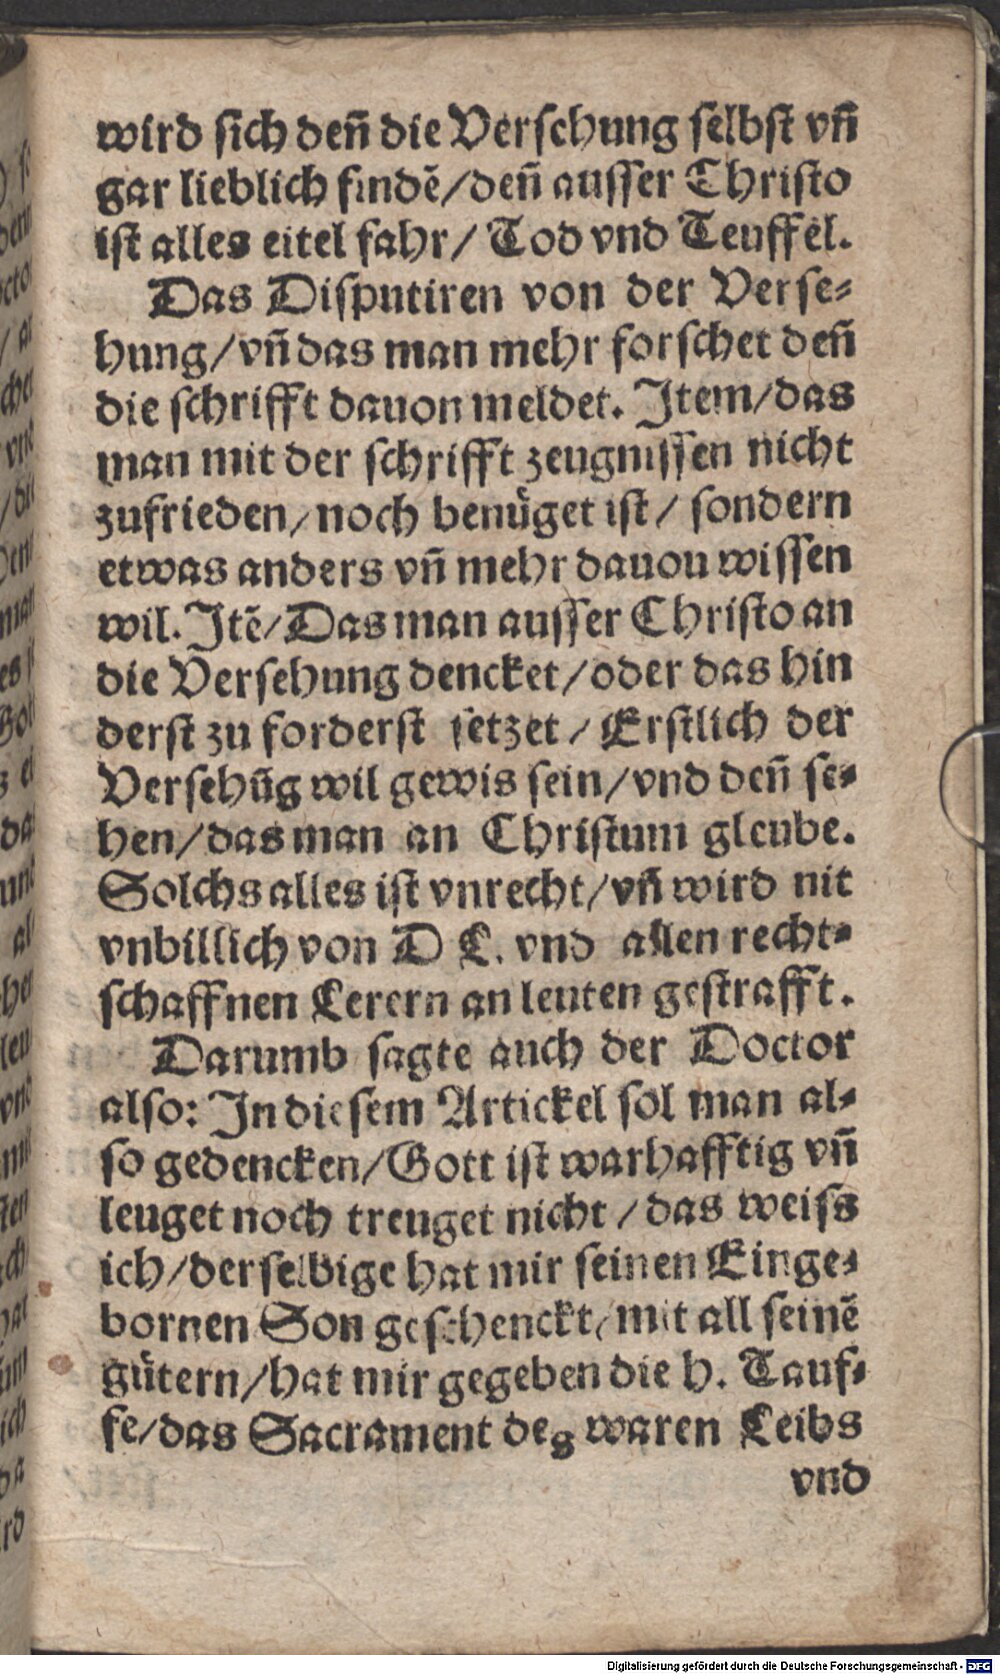 wird sich deñ die Versehung selbst vñ
gar lieblich findẽ/deñ ausser Christo
ist alles eitel fahr/ Tod vnd Teuffel.
Das Disputiren von der Verse-
hung/vñ das man mehr forschet deñ
die schrifft dauon meldet. Item/das
man mit der schrifft zeugnissen nicht
zufrieden/noch benüget ist/ sondern
etwas anders vñ mehr dauou wissen
wil. Itẽ/Das man ausser Christo an
die Versehung dencket/oder das hin
derst zu forderst setzet/ Erstlich der
Versehũg wil gewis sein/vnd deñ se-
hen/das man an Christum gleube.
Solchs alles ist vnrecht/vñ wird nit
vnbillich von D L. vnd allen recht-
schaffnen Lerern an leuten gestrafft.
Darumb sagte auch der Doctor
also: In diesem Artickel sol man al-
so gedencken/Gott ist warhafftig vñ
leuget noch treuget nicht/das weiss
ich/derselbige hat mir seinen Einge-
bornen Son geschenckt/mit all seinẽ
gütern/hat mir gegeben die h. Tauf-
fe/das Sacrament des waren Leibs
vnd
Digitalisierung gefördert durch die Deutsche Forschungsgemeinschaft - DFG